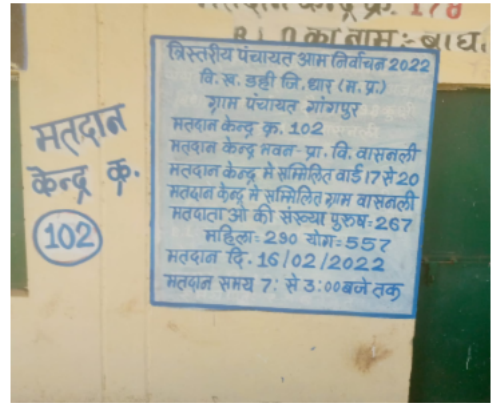 मतदान केन्द्र क्र. 178
B L O का नाम :- बाघ.
त्रिस्तरीय पंचायत आम निर्वाचन 2022
वि. ख. डही जि. धार (म. प्र.)
ग्राम पंचायत गांगपुर
मतदान केन्द्र क्र. 102
मतदान केन्द्र भवन- प्रा. वि. वासनली
मतदान केन्द्र मे सम्मिलित वार्ड 17 से 20
मतदान केन्द्र मे सम्मिलित ग्राम वासनली
मतदाता ओ की संख्या पुरुष= 267
महिला= 290 योग= 557
मतदान दि. 16/02/2022
मतदान समय 7: से 3:00 बजे तक
मतदान
केन्द्र क्र.
102